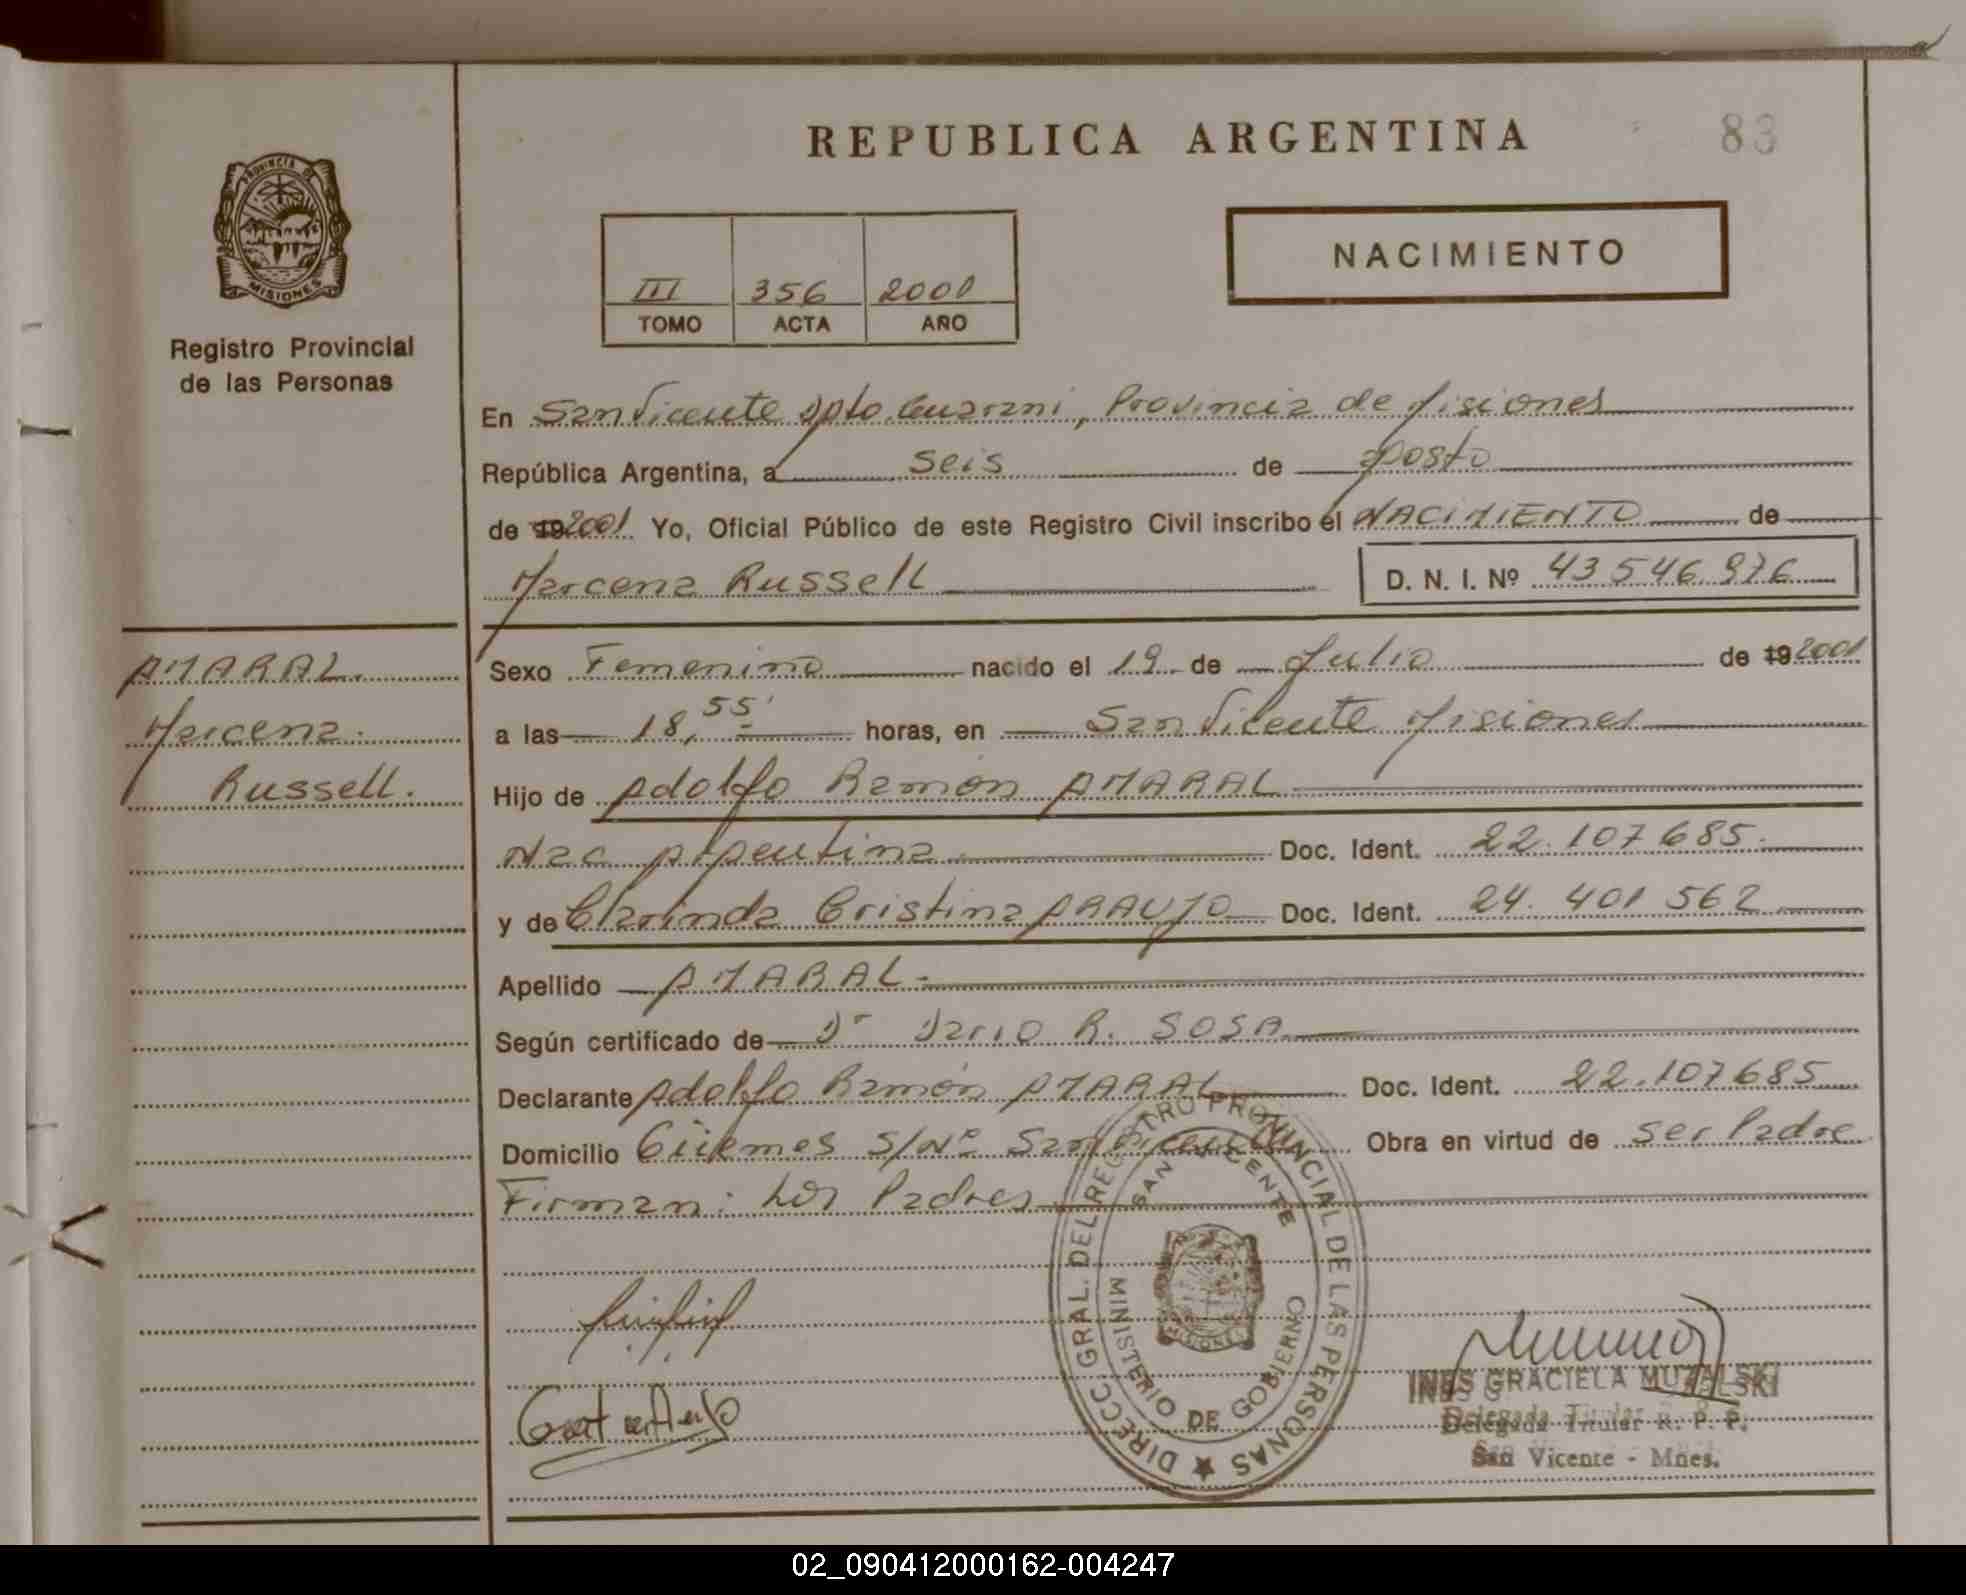 REPUBLICA ARGENTINA
83
PROVINCIA DE MISIONES
Registro Provincial
de las Personas
NACIMIENTO
III 356 2001
TOMO ACTA AÑO
En San Vicente Dpto. Guarani, Provincia de Misiones
República Argentina, a seis de Agosto
de 19 2001 Yo, Oficial Público de este Registro Civil inscribo el NACIMIENTO de
Marcena Russell D. N. I. Nº 43546.976
AMARAL.
Marcena
Russell.
Sexo Femenino nacido el 19 de Julio de 19 2001
a las 18,55' horas, en San Vicente Misiones
Hijo de Adolfo Ramón AMARAL
Nac Argentina Doc. Ident. 22.107685.
y de Clarinda Cristina ARAUJO Doc. Ident. 24.401562
Apellido AMARAL.
Según certificado de Dr Dario R. SOSA
Declarante Adolfo Ramón AMARAL Doc. Ident. 22.107685
Domicilio Güemes S/Nº San Vicente Obra en virtud de ser Padre
Firman: Los Padres
DIRECC. GRAL. DEL REGISTRO PROVINCIAL DE LAS PERSONAS
SAN VICENTE
MINISTERIO DE GOBIERNO
MISIONES
INES GRACIELA MUZALSKI
Delegada Titular R. P. P.
San Vicente - Mnes.
02_090412000162-004247